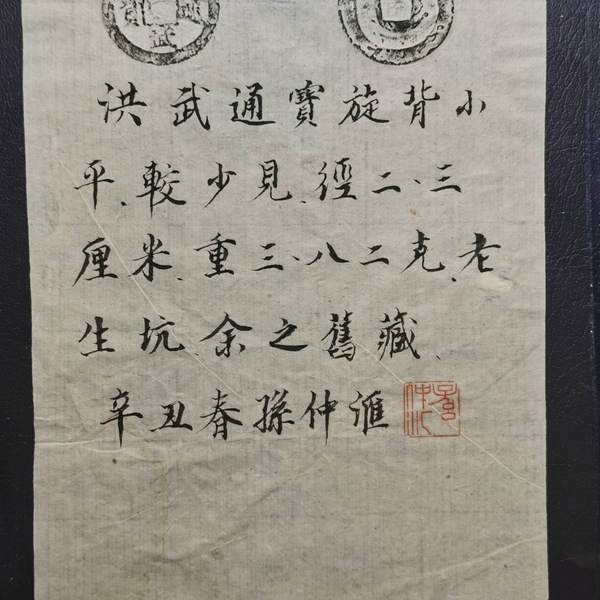 寶 武
洪武通寶旋背小
平、較少見、徑二、三
厘米、重三、八二克、老
生坑、余之舊藏、
辛丑春孫仲滙